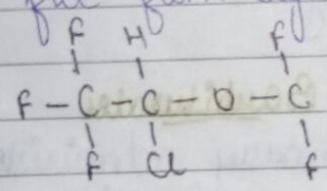 F H F
F - C - C - O - C
F Cl F